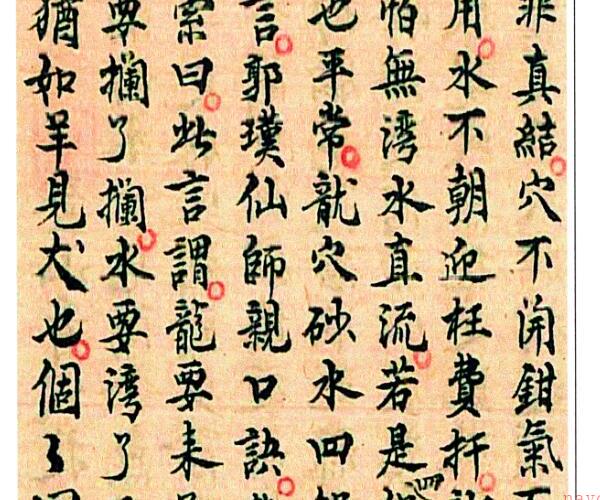 非真結穴不開鉗氣
用水不朝迎枉費扦
怕無湾水直流若是
也平常龍穴砂水四
言郭璞仙師親口訣
索曰此言謂龍要来
要攔了攔水要湾了
猶如羊見犬也個々
nayc